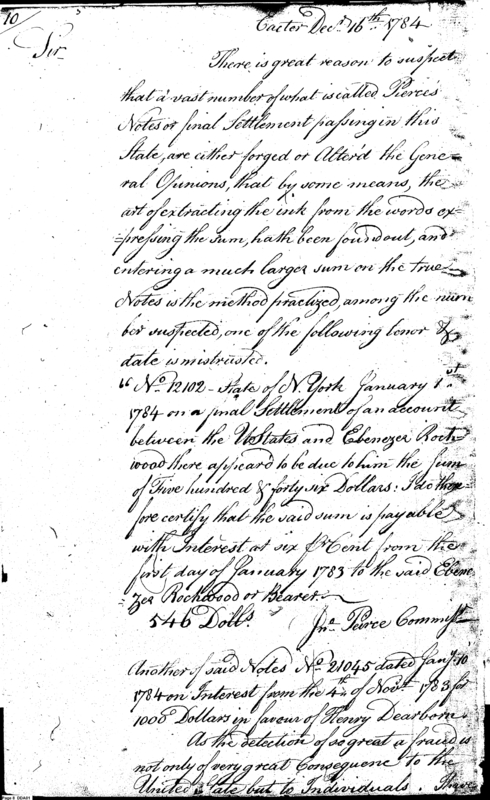 10
Exeter Decr. 16th. 1784
Sir
There is great reason to suspect
that a vast number of what is called Pierce's
Notes or final Settlement passing in this
State, are either forged or Alter'd the Gene-
ral Opinions, that by some means, the
art of extracting the ink from the words ex-
-pressing the sum, hath been found out, and
entering a much larger sum on the true
Notes is the method practized, among the num
ber suspected, one of the following tenor &
date is mistrusted.
"No. 12102 - State of N. York January 1st
1784 on a final Settlement of an account
between the U States and Ebenezer Rock-
wood there appeard to be due to him the Sum
of Five hundred & forty six Dollars: I do there-
fore certify that the said sum is payable
with Interest at six Pr Cent from the
first day of January 1783 to the said Eben
zer Rockwood or Bearer.
546 Dolls. Jno. Peirce Commissr
Another of said Notes No. 21045 dated Jany. 10
1784 on Interest from the 4th of Novr. 1783 for
1000 Dollars in favour of Henry Dearborn.
As the detection of so great a fraud is
not only of very great Consequence to the
United State but to Individuals. I have
Page 6